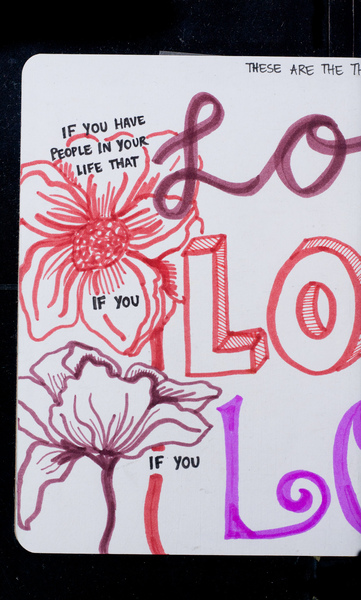 THESE ARE THE
IF YOU HAVE
PEOPLE IN YOUR
LIFE THAT
Lo
IF YOU
LO
IF YOU
L